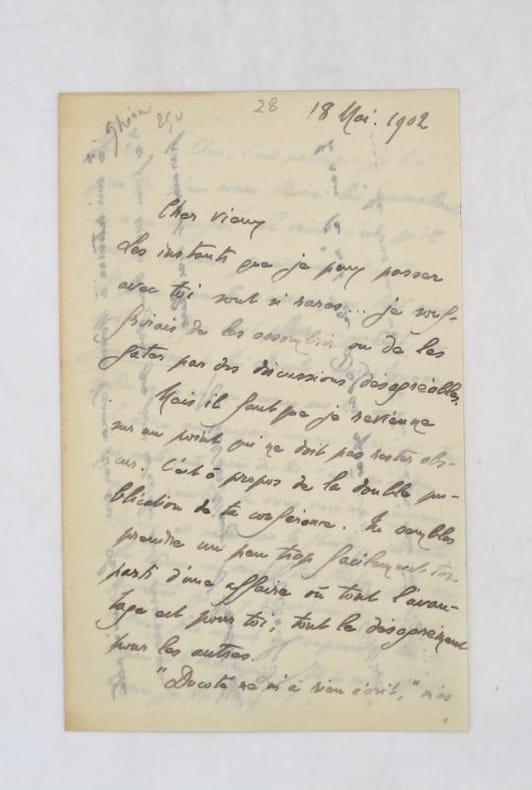 28
18 Mai. 1902
Ghéon
250
Cher vieux
Les instants que je puis passer
avec toi sont si rares... je souf-
frirais de les assombrir ou de les
gâter par des discussions désagréables.
Mais il faut que je revienne
sur un point qui ne doit pas rester obs-
cur. C'est à propos de la double pu-
blication de ta conférence. Tu sembles
prendre un peu trop facilement ton
parti d'une affaire où tout l'avan-
tage est pour toi, tout le désagrément
pour les autres.
"Ducoté ne m'a rien écrit," m'as